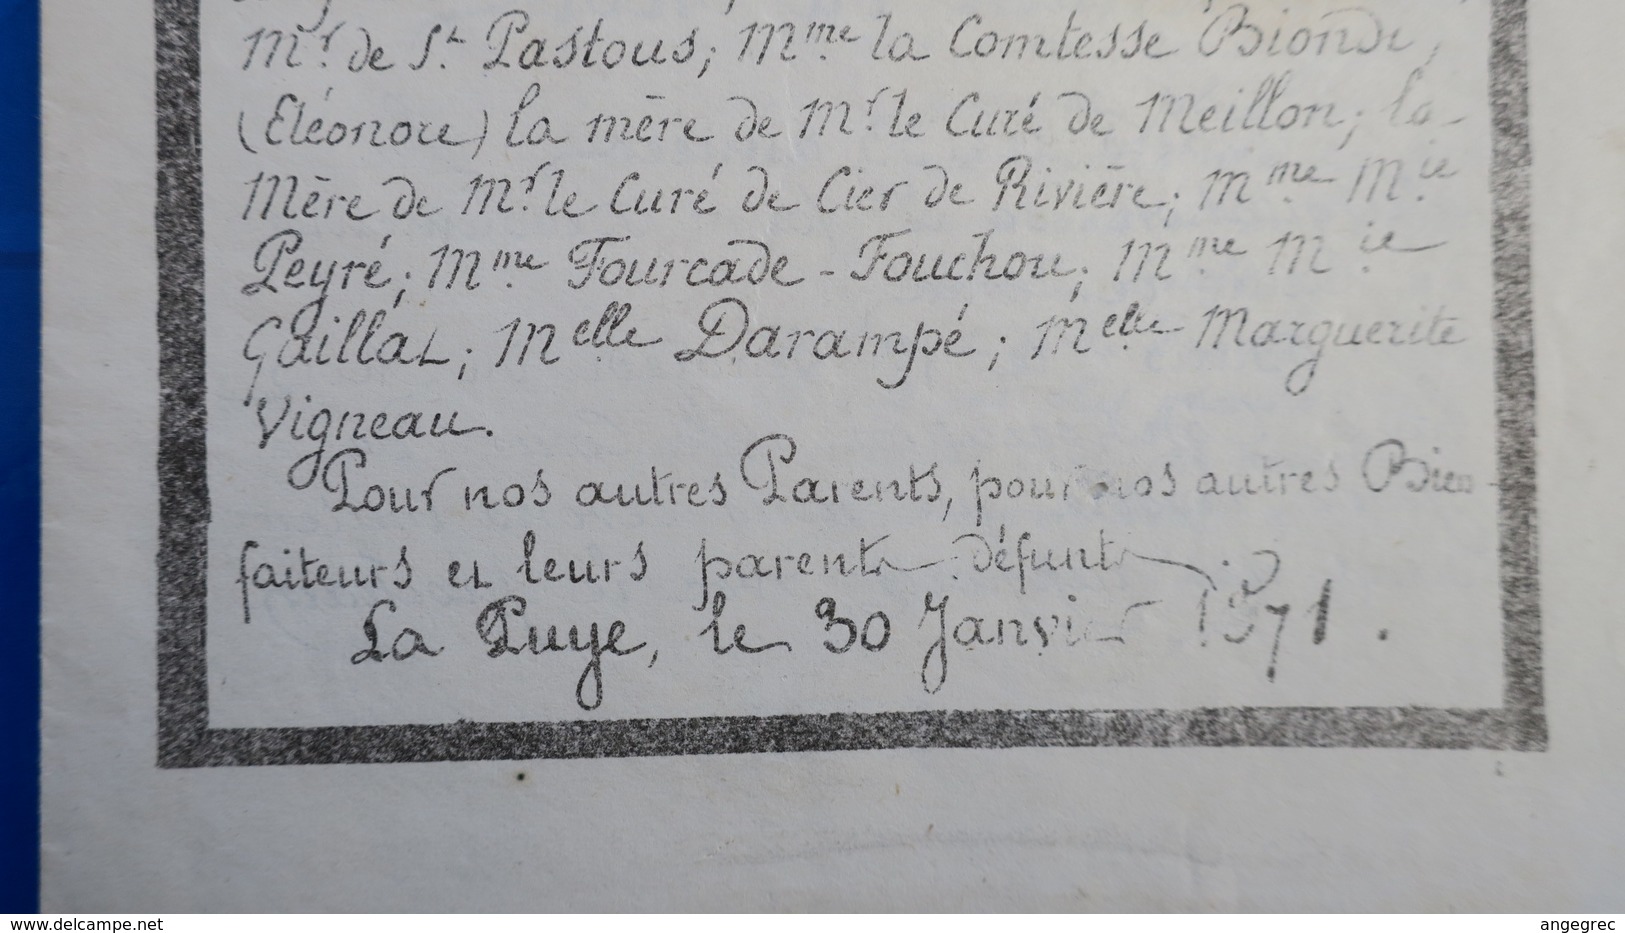 Mr. de St. Pastous; Mme la Comtesse Biondi,
(Eléonore) la mère de Mr. le Curé de Meillon; la
Mère de Mr. le Curé de Cier de Rivière; Mme. Mie.
Peyré; Mme. Fourcade-Fouchou; Mme. Mie.
Gaillat; Melle Darampé; Melle Marguerite
Vigneau.
Pour nos autres Parents, pour nos autres Bien-
faiteurs et leurs parents défunts
La Puye, le 30 Janvier 1871.
www.delcampe.net
angegrec